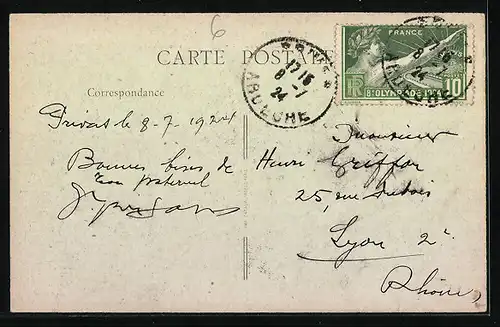 6
CARTE POSTALE
PRIVAS
17 15
8 -7
24
ARDECHE
FRANCE
RF
8e OLYMPIADE 1924
10
Correspondance
Privas 8-7-1924
Bonnes bises de
ton paternel
Monsieur
Henri Griffon
25, rue Dubois
Lyon 2e
Rhône